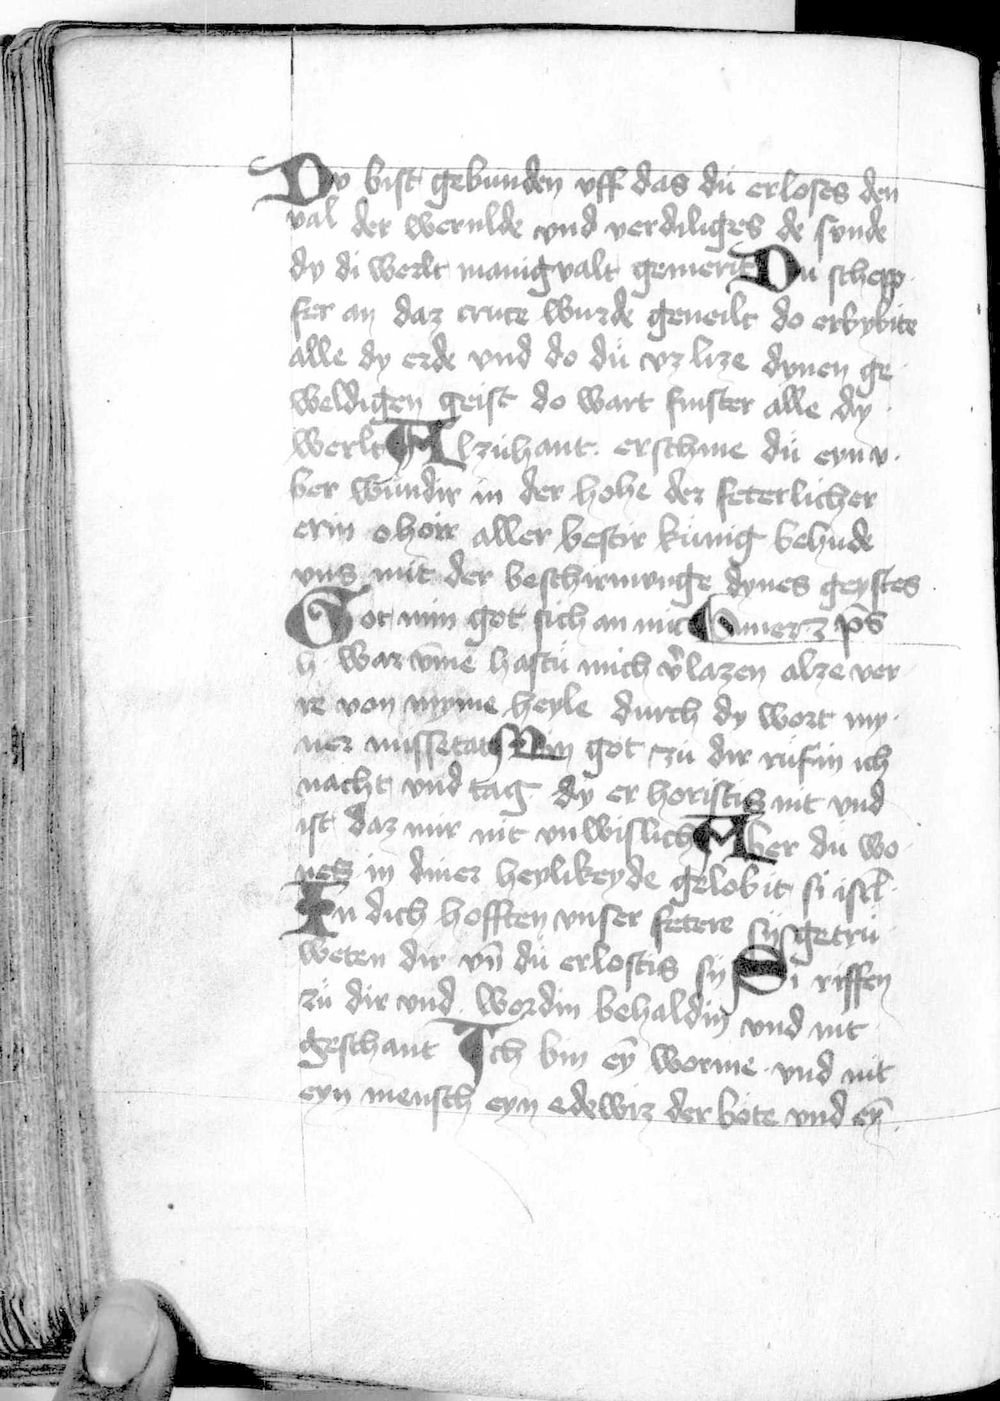 Dv bist gebunden vff das dü erloses den
val der wernlde vnd verdiliges de sunde
dy di werlt manigvalt gemerit Du schepp
fer an daz cruce wurde geneilt do erbybite
alle dy erde vnd do dü vz lize dynen ge
weldigen geist do wart finster alle dy
werlt Alzühant erschine dü eyn v
ber wundir in der hohe der feterlicher
erin o hoir aller bestir künig behude
vns mit der beschirmunge dynes geystes
Got min got sich an mir ps
h war vm̄e hastü mich v̾lazen alze ver
re von myme heyle durch dy wort my
ner missetat Min got zü dir rüfin ich
nacht vnd tag dy er horistis nit vnd
ist daz mir nit vnwislich Aber dü wo
nes in diner heylikeyde gelobit si isrl
In dich hofften vnser fetere sy getru
weten dir vn̄ dü erlostis sy Si riffen
zü dir vnd wordin behaldin vnd nit
geschant Ich bin ey̅ worme vnd nit
eyn mensch eyn edewiz der lote vnd ey̅